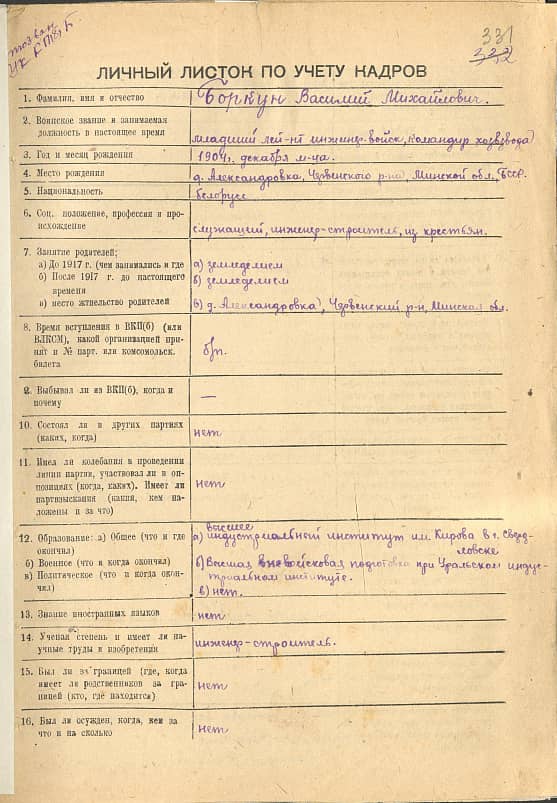 отозван
УК КП(б)Б
331
ЛИЧНЫЙ ЛИСТОК ПО УЧЕТУ КАДРОВ
1. Фамилия, имя и отчество Боркун Василий Михайлович.
2. Воинское звание и занимаемая
должность в настоящее время младший лей-нт инженер. войск, командир хозвзвода
3. Год и месяц рождения 1904г. декабря м-ца.
4. Место рождения д. Александровка, Червенского р-на, Минской обл., БССР.
5. Национальность белорусс
6. Соц. положение, профессия и про-
исхождение служащий, инженер-строитель, из крестьян.
7. Занятие родителей:
а) До 1917 г. (чем занимались и где а) земледелием
б) После 1917 г. до настоящего б) земледелием
времени
в) место жительство родителей в) д. Александровка, Червенский р-н, Минская обл.
8. Время вступления в ВКП(б) (или
ВЛКСМ), какой организацией при-
нят и № парт. или комсомольск. б/п.
билета
9. Выбывал ли из ВКП(б), когда и
почему —
10. Состоял ли в других партиях
(каких, когда) нет
11. Имел ли колебания в проведении
линии партии, участвовал ли в оп-
позициях (когда, каких). Имеет ли нет
партвзыскания (какия, кем на-
ложены и за что)
высшее
12. Образование: а) Общее (что и где а) индустриальный институт им. Кирова в г. Сверд-
окончил) ловске
б) Военное (что и когда окончил) б) Высшая вневойсковая подготовка при Уральском индус-
в) Политическое (что и когда окон- триальном институте.
чил) в) нет.
13. Знание иностранных языков нет
14. Ученая степень и имеет ли на-
учные труды и изобретения инженер-строитель.
15. Был ли за границей (где, когда
имеет ли родственников за гра- нет
ницей (кто, где находится)
16. Был ли осужден, когда, кем за
что и на сколько нет